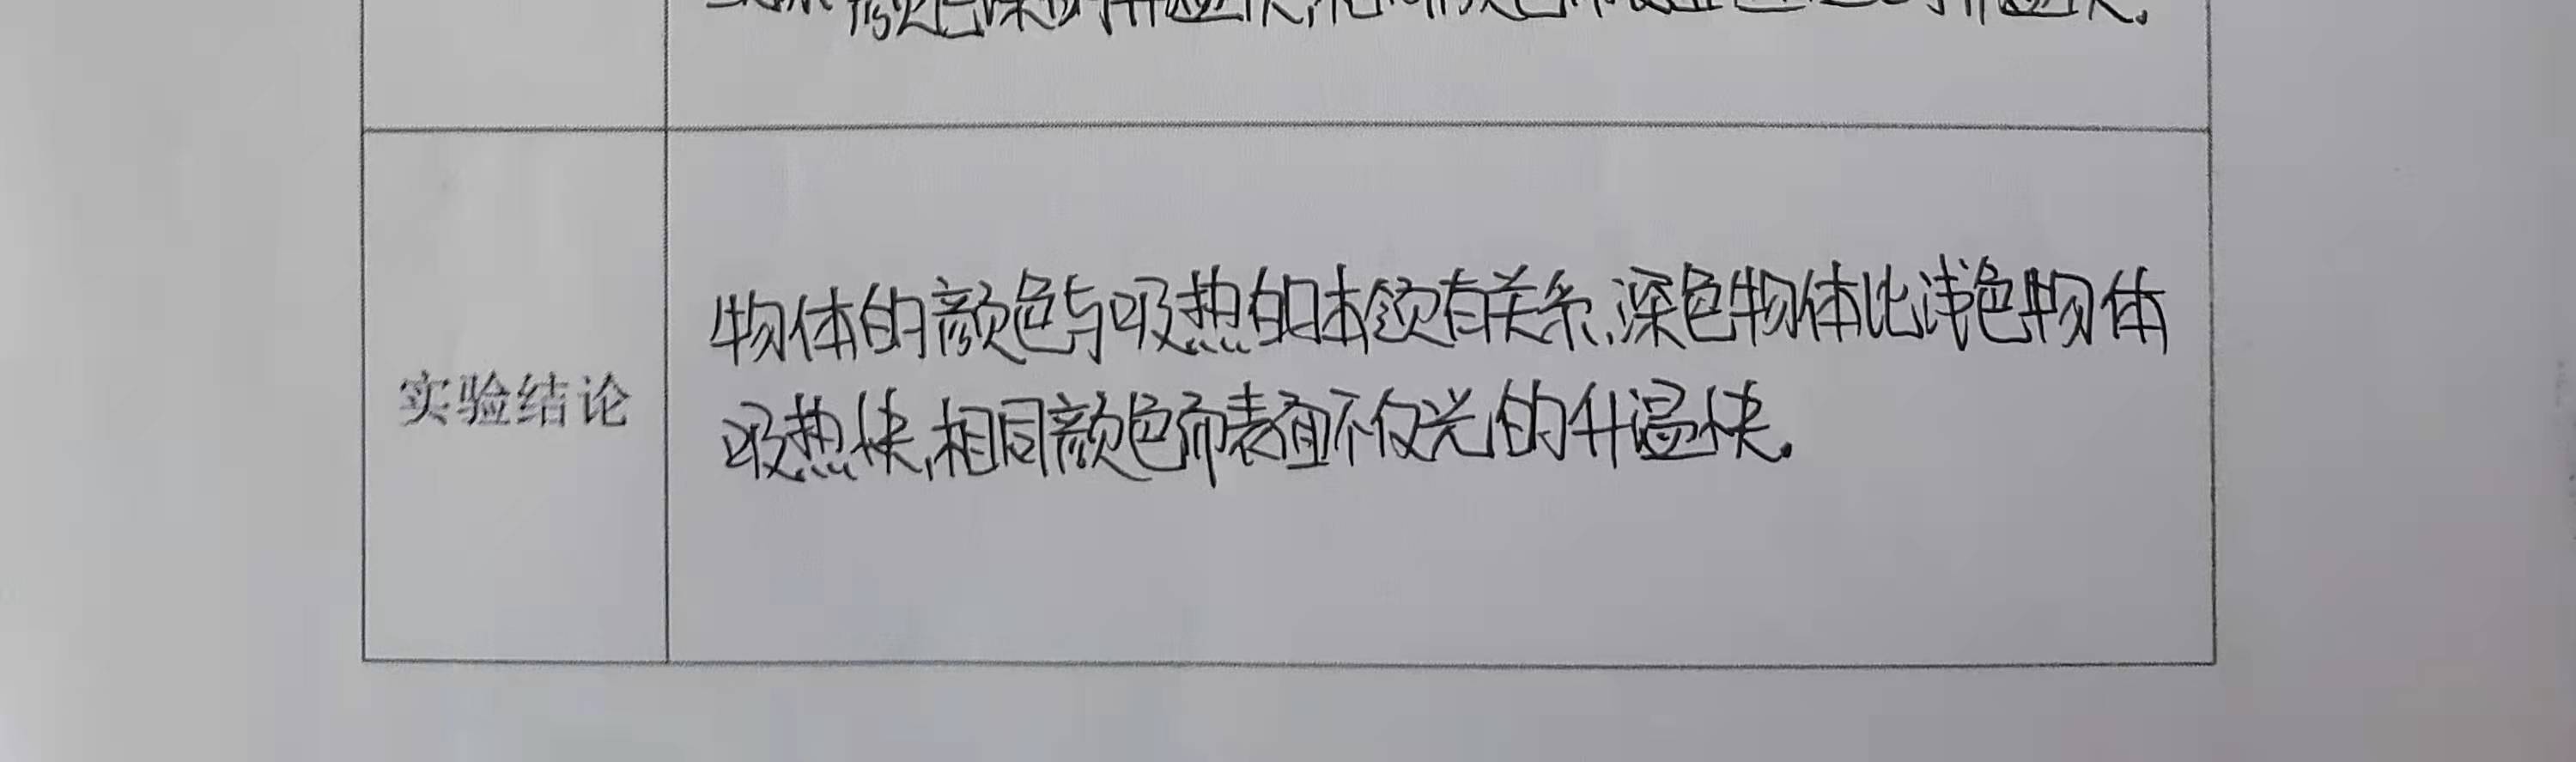 颜色深的升温快,相同颜色
物体的颜色与吸热的本领有关系,深色物体比浅色物体
实验结论
吸热快,相同颜色而表面不仅光的升温快。